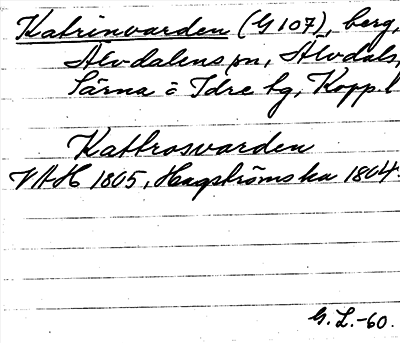 Katrinvarden (G 107), berg,
Älvdalens sn, Älvdals,
Särna o Idre tg, Kopp. l
Kattrosvarden
VAH 1805, Hagströms ka 1804.
G. L.-60.